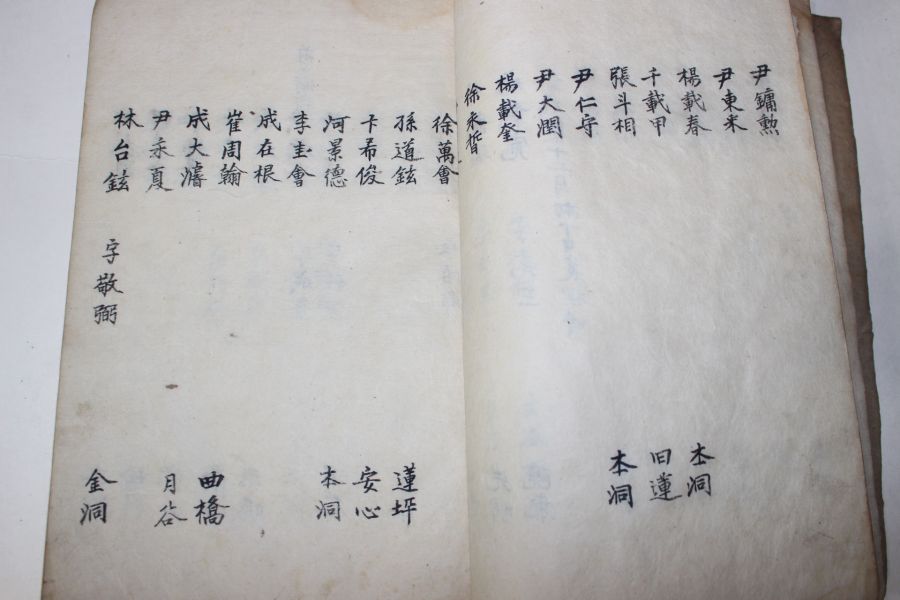 尹鏞勲
尹東米
楊載春 本洞
千載甲 旧蓮
張斗相 本洞
尹仁守
尹大潤
楊載奎
徐來晳
徐萬會
孫道鉉 蓮坪
卞希俊 安心
河景德 本洞
李圭會
成在根
崔周翰
成大濬 曲橋
尹秉夏 月谷
林台鉉 字敬弼 金洞